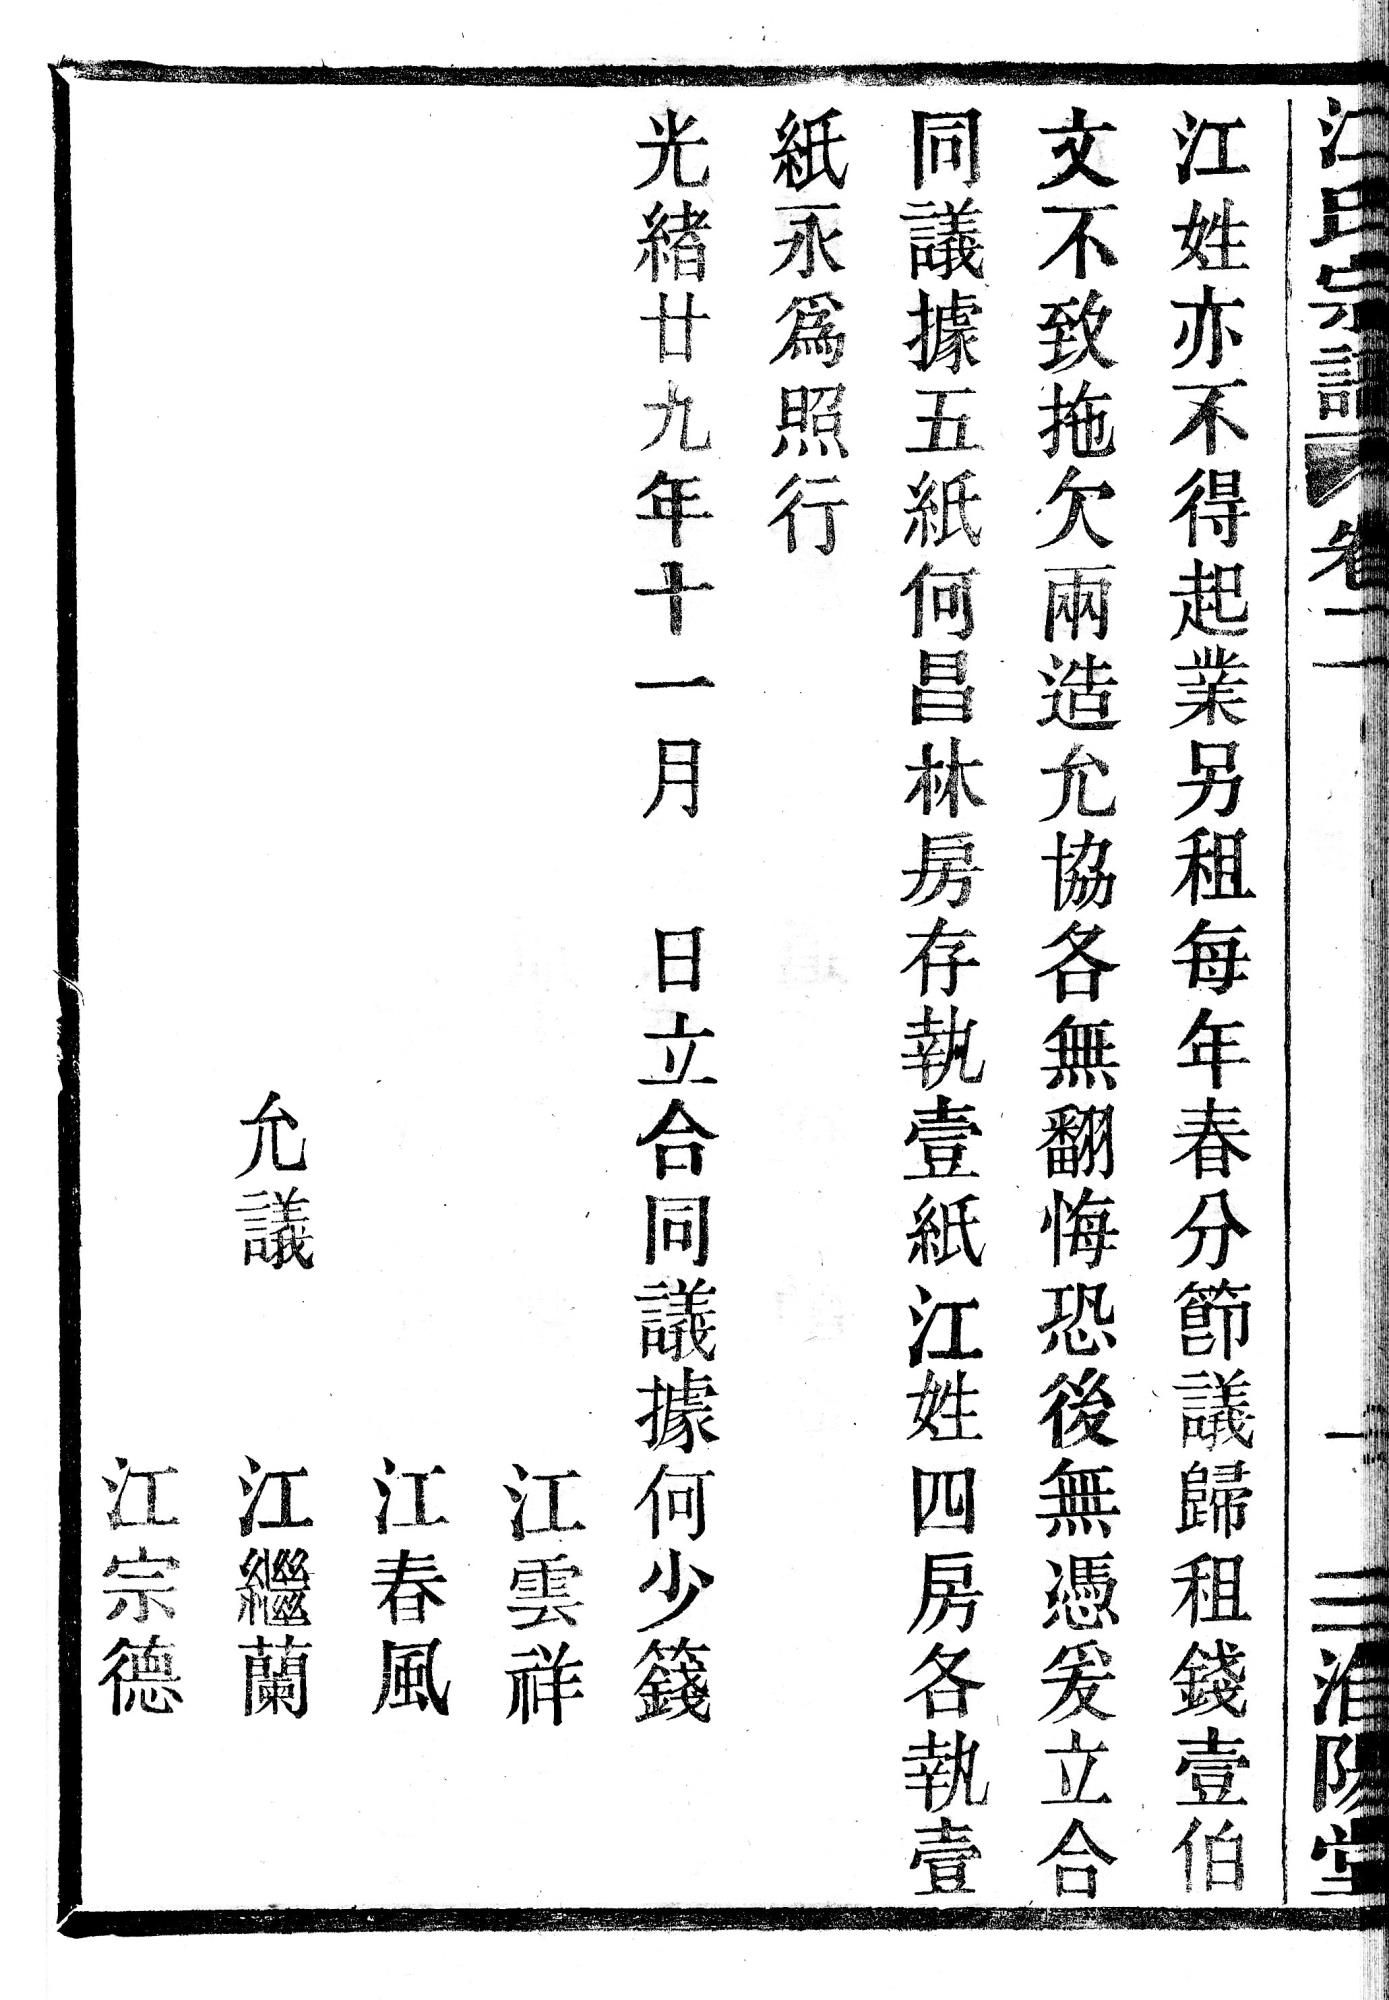 江氏宗譜 卷二 一 三 淮陽堂
江姓亦不得起業另租每年春分節議歸租錢壹伯
文不致拖欠兩造允協各無翻悔恐後無憑爰立合
同議據五紙何昌林房存執壹紙江姓四房各執壹
紙永爲照行
光緒廿九年十一月 日立合同議據何少籛
江雲祥
江春風
允議 江繼蘭
江宗德